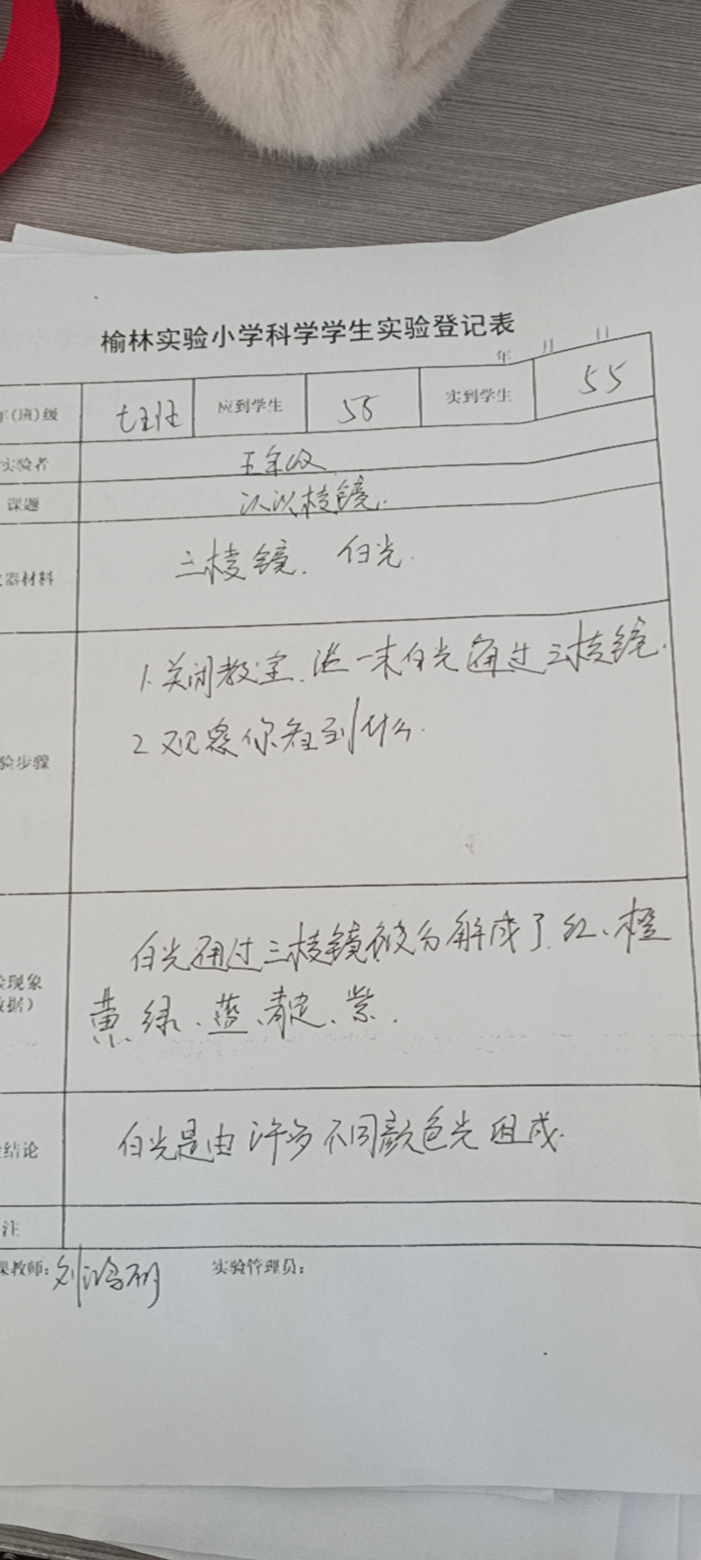 榆林实验小学科学学生实验登记表
年 月 日
(班)级 应到学生 55 实到学生 55
实验者 五年级
课题 认识棱镜.
器材料 三棱镜. 白光.
1.关闭教室.让一束白光通过三棱镜.
验步骤
2 观察你看到什么.
白光通过三棱镜被分解成了.红、橙
现象
数据)
黄、绿、蓝、靛、紫.
结论 白光是由许多不同颜色光组成.
注
课教师: 刘 实验管理员: